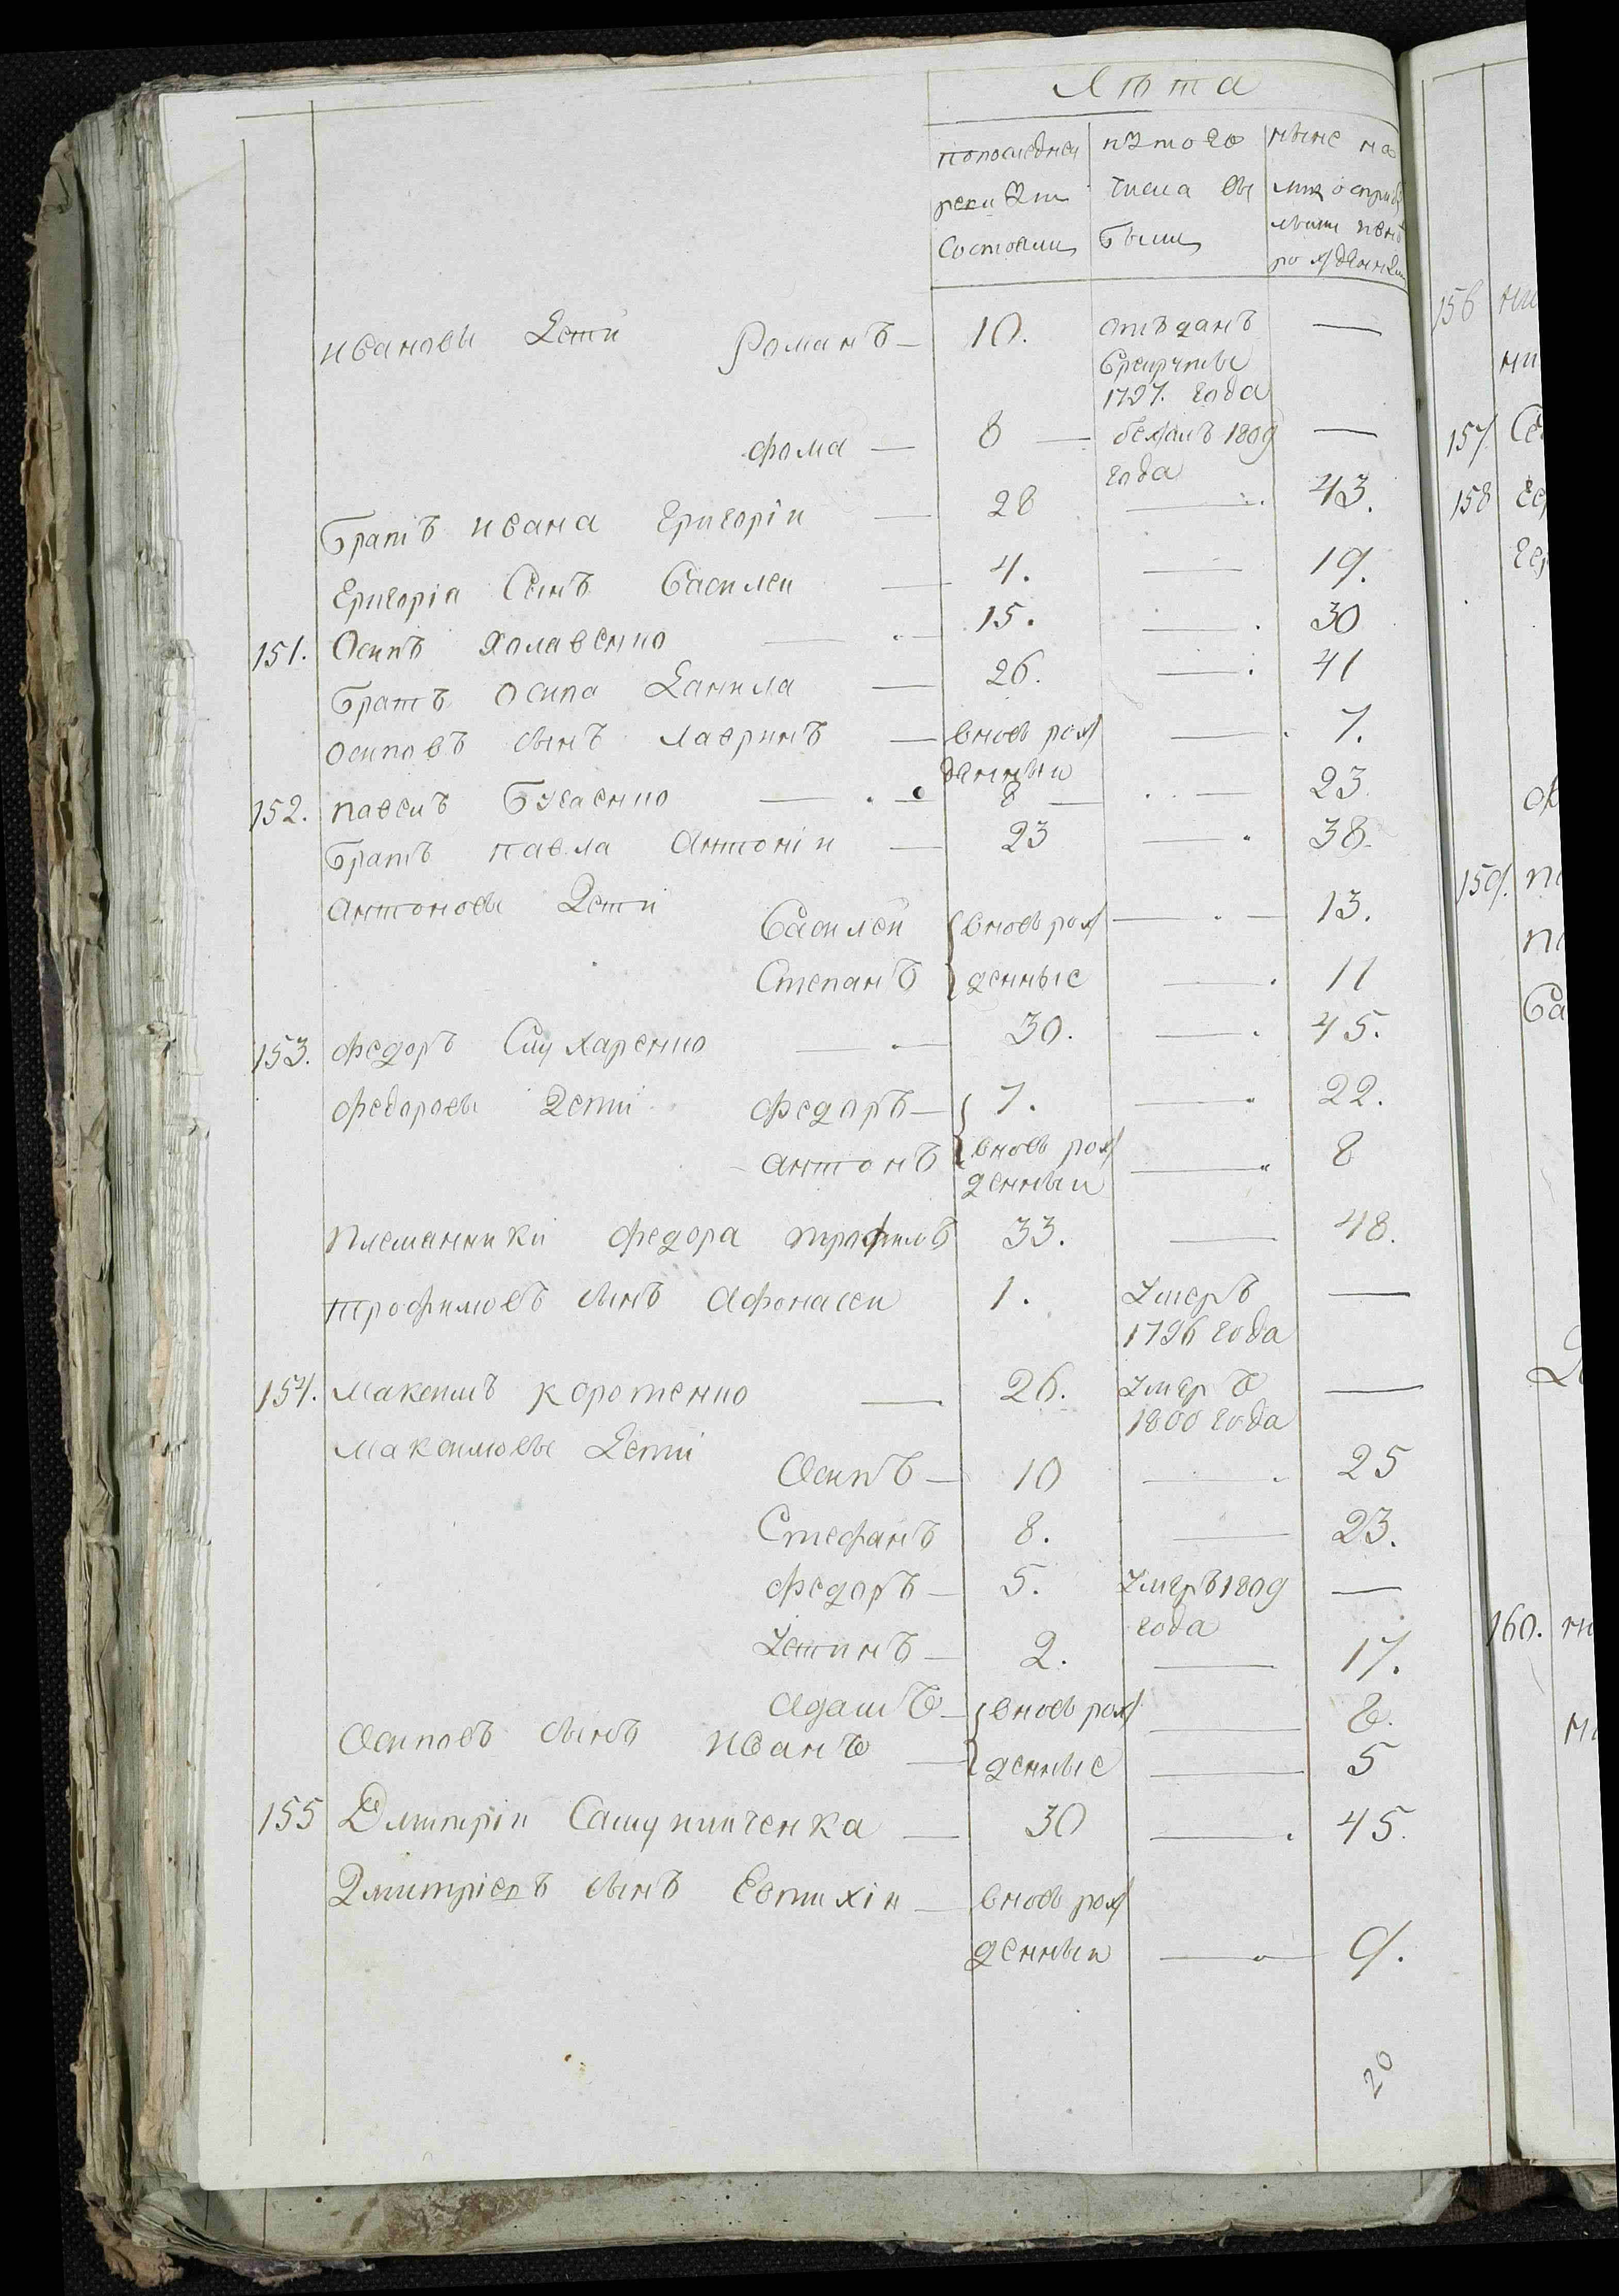 Лѣта
попоследней | изтого | ныне на
ревизiи | числа вы | лицо спри
состояли | были | былыми и вновь
рожденными
Ивановы Дети Романъ — 10. отъданъ —
Врекруты
1797. года
Фома — 8 — бежалъ 1809 —
года
Братъ Ивана Григорiи — 28 — 43.
Григорiя Сынъ Василеи — 4. — 19.
151. Осипъ — 15. — 30
Братъ Осипа Данила — 26. — 41
Осиповъ сынъ Лавринъ — вновь рож — 7.
денныи
152. Павелъ Бугаенко — 8 — 23.
Братъ Павла Антонiи — 23 — 38.
Антоновы Дети Василеи вновь рож — 13.
Степанъ денные — 11
153. Федоръ — 30. — 45.
Федоровы Дети Федоръ — 7. — 22.
Антонъ вновь рож — 8
денныи
Племянники Федора Трофимъ 33. — 48.
Трофимовъ сынъ Афонасеи 1. Умеръ —
1796 года
154. Максимъ Коротенко — 26. Умеръ —
1800 года
Максимовы Дети
Осипъ — 10 — 25
Стефанъ 8. — 23.
Федоръ — 5. Умеръ 1809 —
года
Устинъ — 2. — 17.
Адамъ — вновь рож — 8.
Осиповъ сынъ Иванъ — денные — 5
155 Дмитрiи — 30 — 45.
Дмитрiевъ сынъ Евтихiи — вновь рож
денныи — 9.
20
156
157.
158
159.
160.